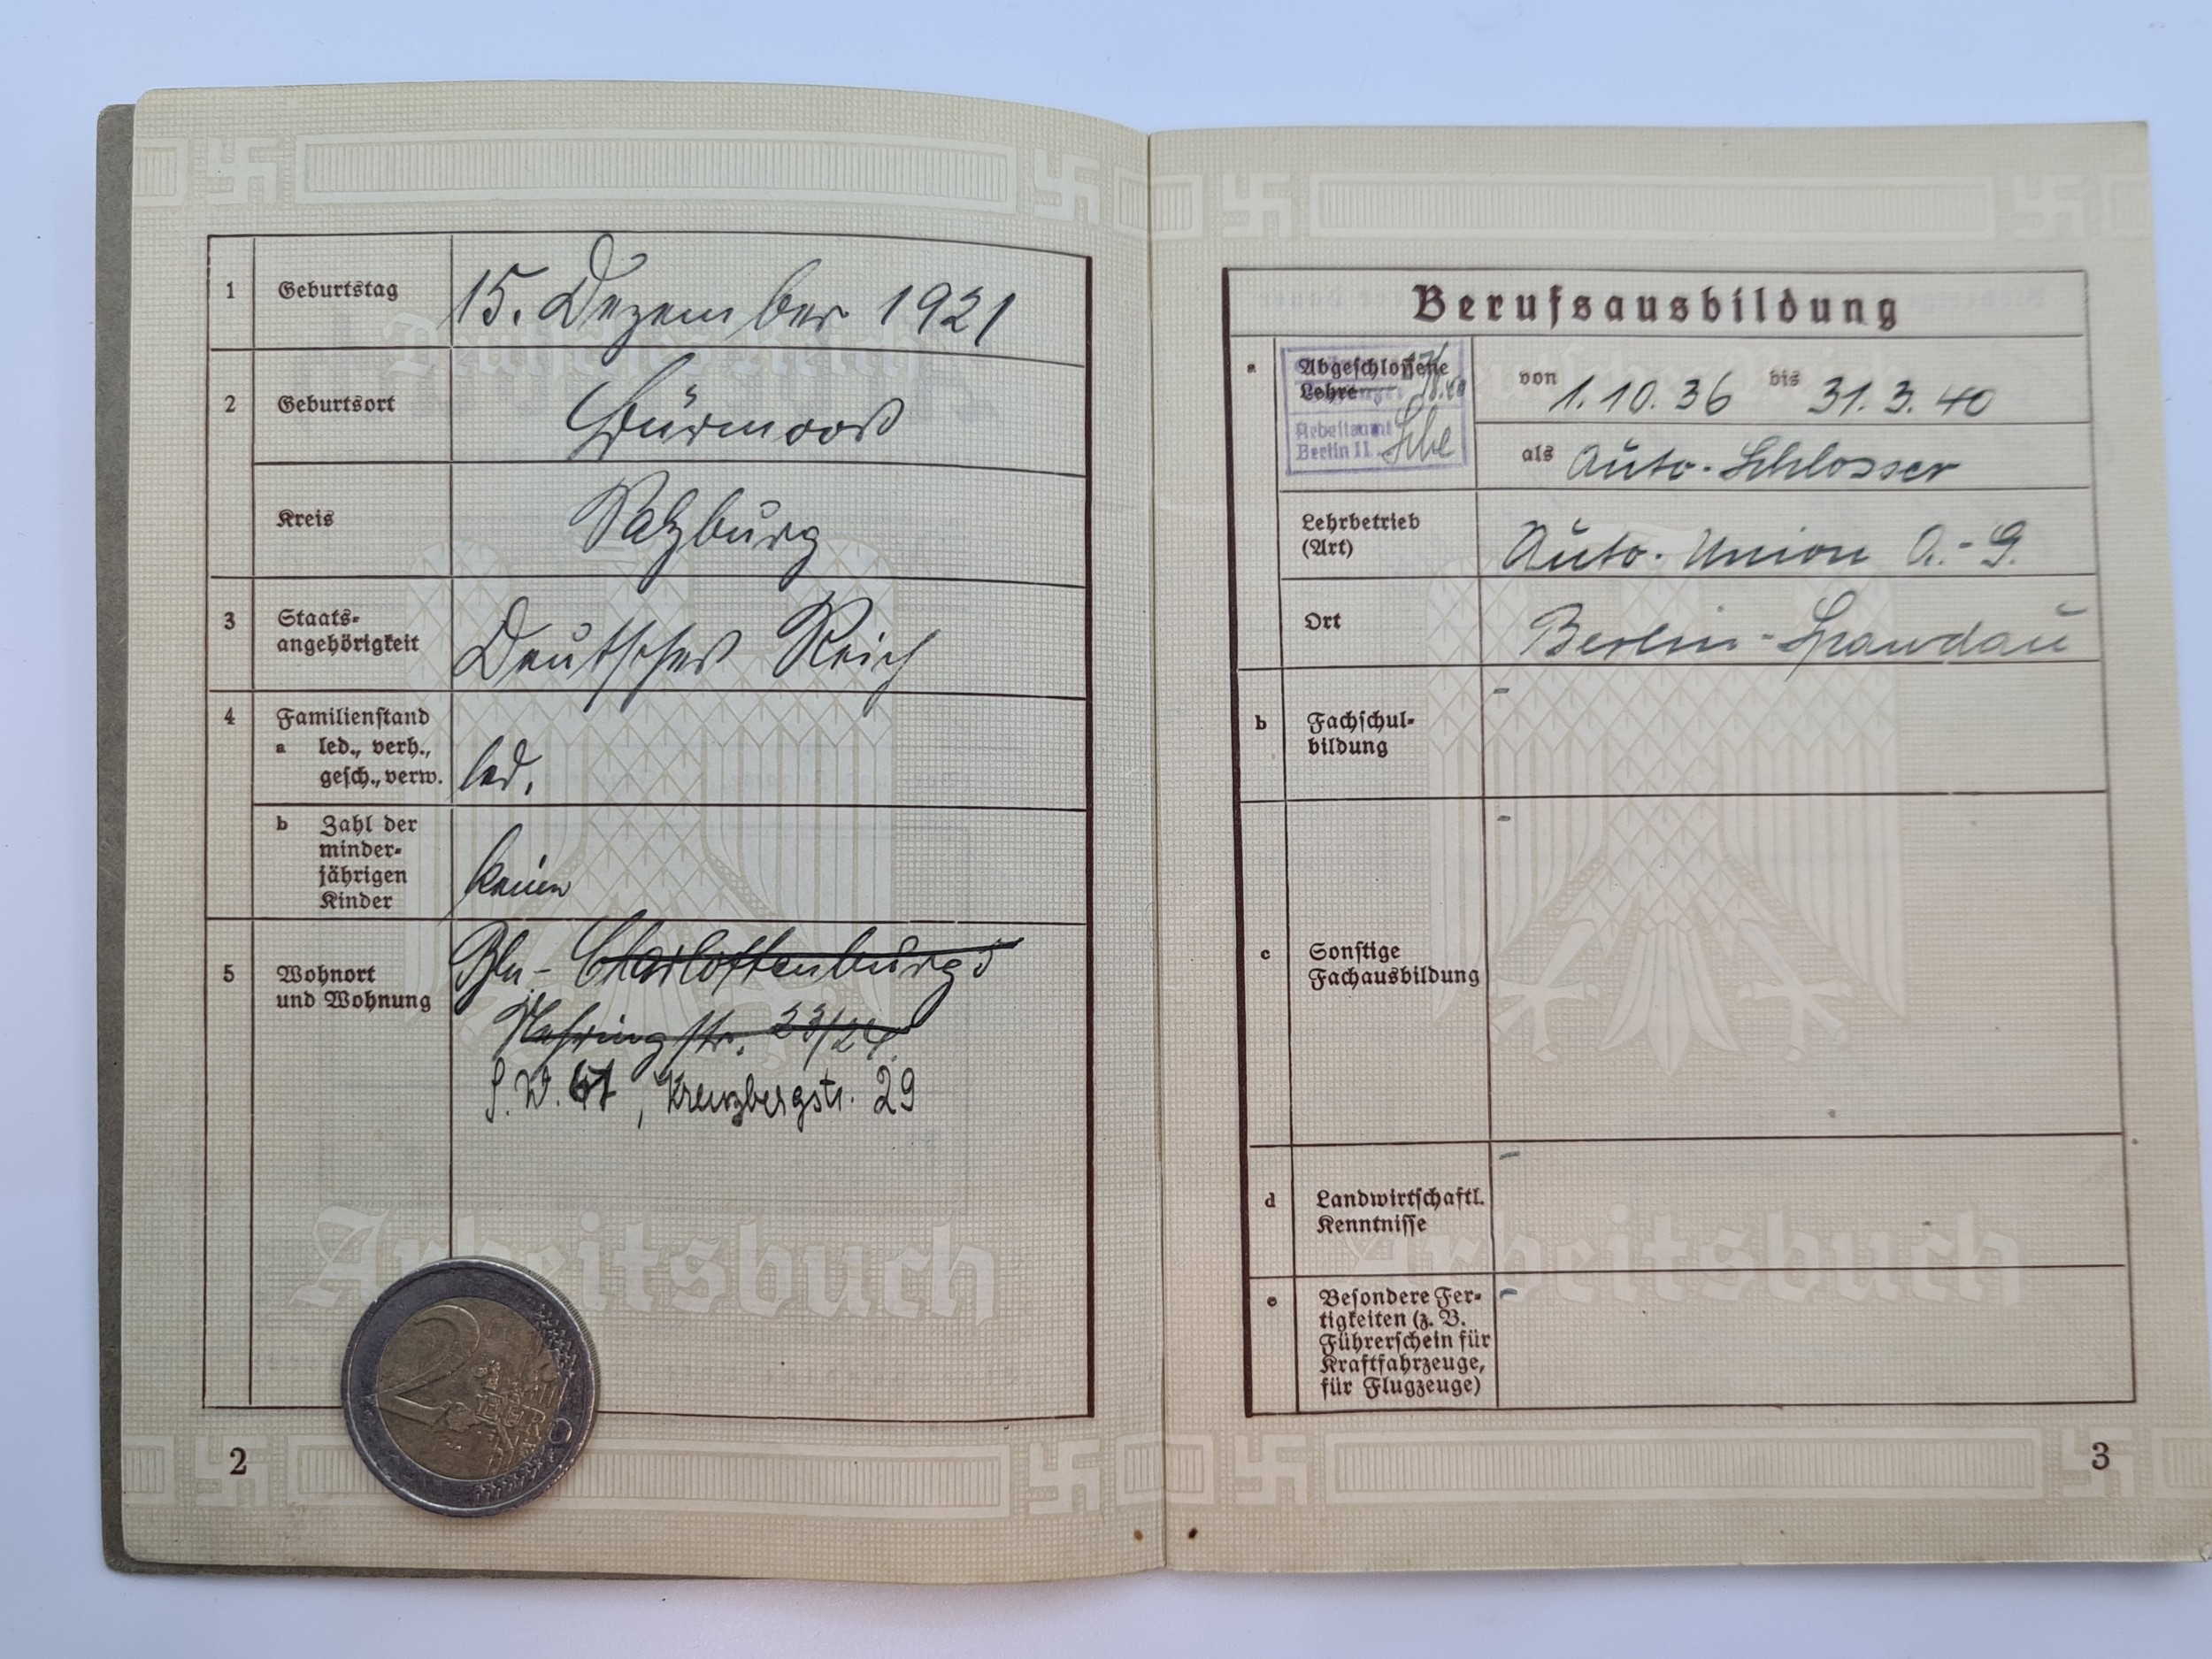 1 Geburtstag 15. Dezember 1921
2 Geburtsort Bürmoos
Kreis Salzburg
3 Staats-
angehörigkeit Deutsches Reich
4 Familienstand
a led., verh.,
gesch., verw. led.
b Zahl der
minder-
jährigen
Kinder keine
5 Wohnort
und Wohnung
Bln-Charlottenburg 5
Nehringstr. 23/24.
S.W. 61, Kreuzbergstr. 29
Arbeitsbuch
2 EURO
2
Berufsausbildung
a Abgeschlossene
Lehre
Arbeitsamt
Berlin II
von 1.10.36 bis 31.3.40
als Auto-Schlosser
Lehrbetrieb
(Art) Auto-Union A.-G.
Ort Berlin-Spandau
b Fachschul-
bildung -
c Sonstige
Fachausbildung -
d Landwirtschaftl.
Kenntnisse -
e Besondere Fer-
tigkeiten (z. B.
Führerschein für
Kraftfahrzeuge,
für Flugzeuge) -
Arbeitsbuch
3